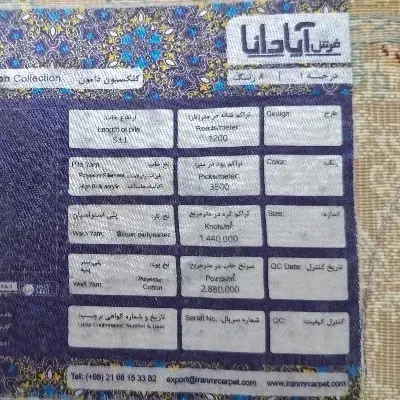 فرش آپادانا
درجه ۱ | ۸ رنگ
کلکسیون دامون
Collection
طرح: Design:
تراکم شانه در متر(نار):
Reeds/meter:
1200
ارتفاع خاب:
Length of pile
5±1
رنگ: Color:
تراکم پود در متر:
Picks/meter:
3500
نخ خاب: Pile Yarn:
Polyester Filament
High Bulk acrylic
اندازه: Size:
تراکم گره در مترمربع:
Knots/m²:
1.440.000
نخ تار: پلی استر اسپان
Warp Yarn: Spun polyester
تاریخ کنترل: QC Date:
سوزن خاب در مترمربع:
Points/m²:
2.880.000
نخ پود: پلی‌استر پنبه
Weft Yarn: Polyester Cotton
کنترل کیفیت: QC:
شماره سریال: Serial No.
تاریخ و شماره گواهی برچسب:
Lable Confirmation Number & Date:
Tel: (+98) 21 66 15 33 82 export@iranmrcarpet.com www.iranmrcarpet.com